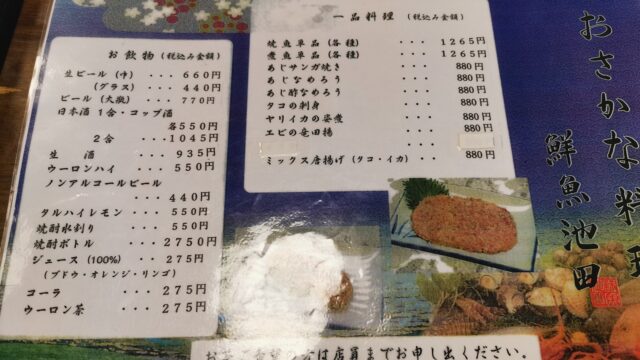 お飲物 (税込み金額)
生ビール (中) ・・・ 660円
(グラス) ・・・ 440円
ビール (大瓶) ・・・ 770円
日本酒 1合・コップ酒
各550円
2合 ・・・ 1045円
生酒 ・・・ 935円
ウーロンハイ ・・・ 550円
ノンアルコールビール
・・・ 440円
タルハイレモン ・・・ 550円
焼酎水割り ・・・ 550円
焼酎ボトル ・・・ 2750円
ジュース (100%) ・・・ 275円
(ブドウ・オレンジ・リンゴ)
コーラ ・・・ 275円
ウーロン茶 ・・・ 275円
一品料理 (税込み金額)
焼魚単品 (各種) ・・・ 1265円
煮魚単品 (各種) ・・・ 1265円
あじサンガ焼き ・・・ 880円
あじなめろう ・・・ 880円
あじ酢なめろう ・・・ 880円
タコの刺身 ・・・ 880円
ヤリイカの姿煮 ・・・ 880円
エビの竜田揚 ・・・ 880円
ミックス唐揚げ (タコ・イカ) ・・ 880円
おさかな料理
鮮魚池田
は店員までお申し出ください。